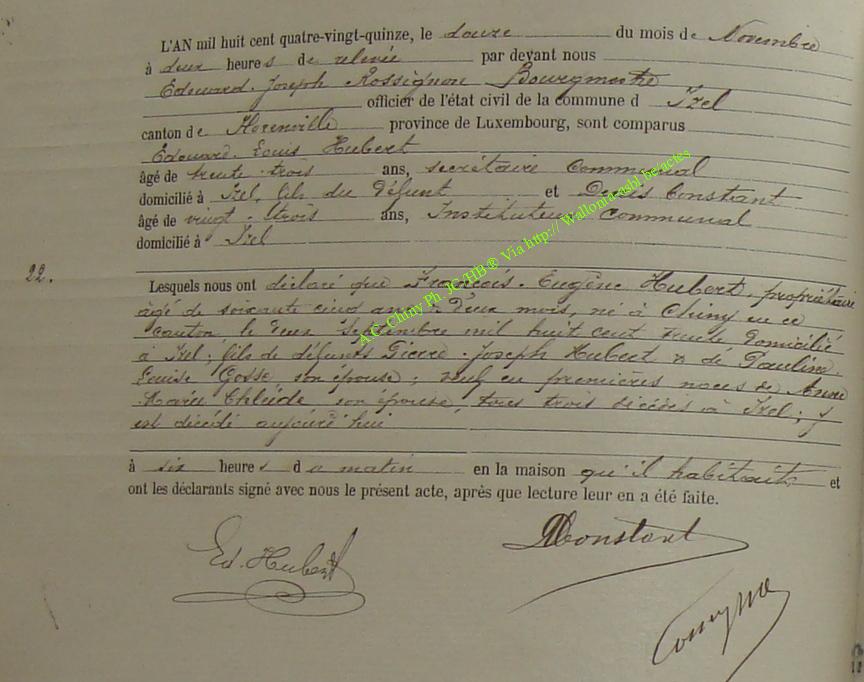 L'AN mil huit cent quatre-vingt-quinze, le douze du mois de Novembre
à deux heures de relevée par devant nous
Edouard Joseph Rossignon Bourgmestre
officier de l'état civil de la commune d Izel
canton de Florenville province de Luxembourg, sont comparus
Edouard Louis Hubert
âgé de trente trois ans, secrétaire communal
domicilié à Izel, fils du défunt et Denis Constant
âgé de vingt trois ans, Instituteur communal
domicilié à Izel
22.
Lesquels nous ont déclaré que François Eugène Hubert, propriétaire
âgé de soixante cinq ans deux mois, né à Chiny en ce
canton le deux Septembre mil huit cent trente domicilié
à Izel; fils de défunts Pierre Joseph Hubert & de Pauline
Louise Gosse son épouse; veuf en premières noces de Anne
Marie son épouse, tous trois décédés à Izel; y
est décédé aujourd'hui
à six heures d u matin en la maison qu'il habitait et
ont les déclarants signé avec nous le présent acte, après que lecture leur en a été faite.
Ed. Hubert
DConstant
A.G. Chiny Ph. JC/HB ® Via http:// Wallonia-asbl.be/actes